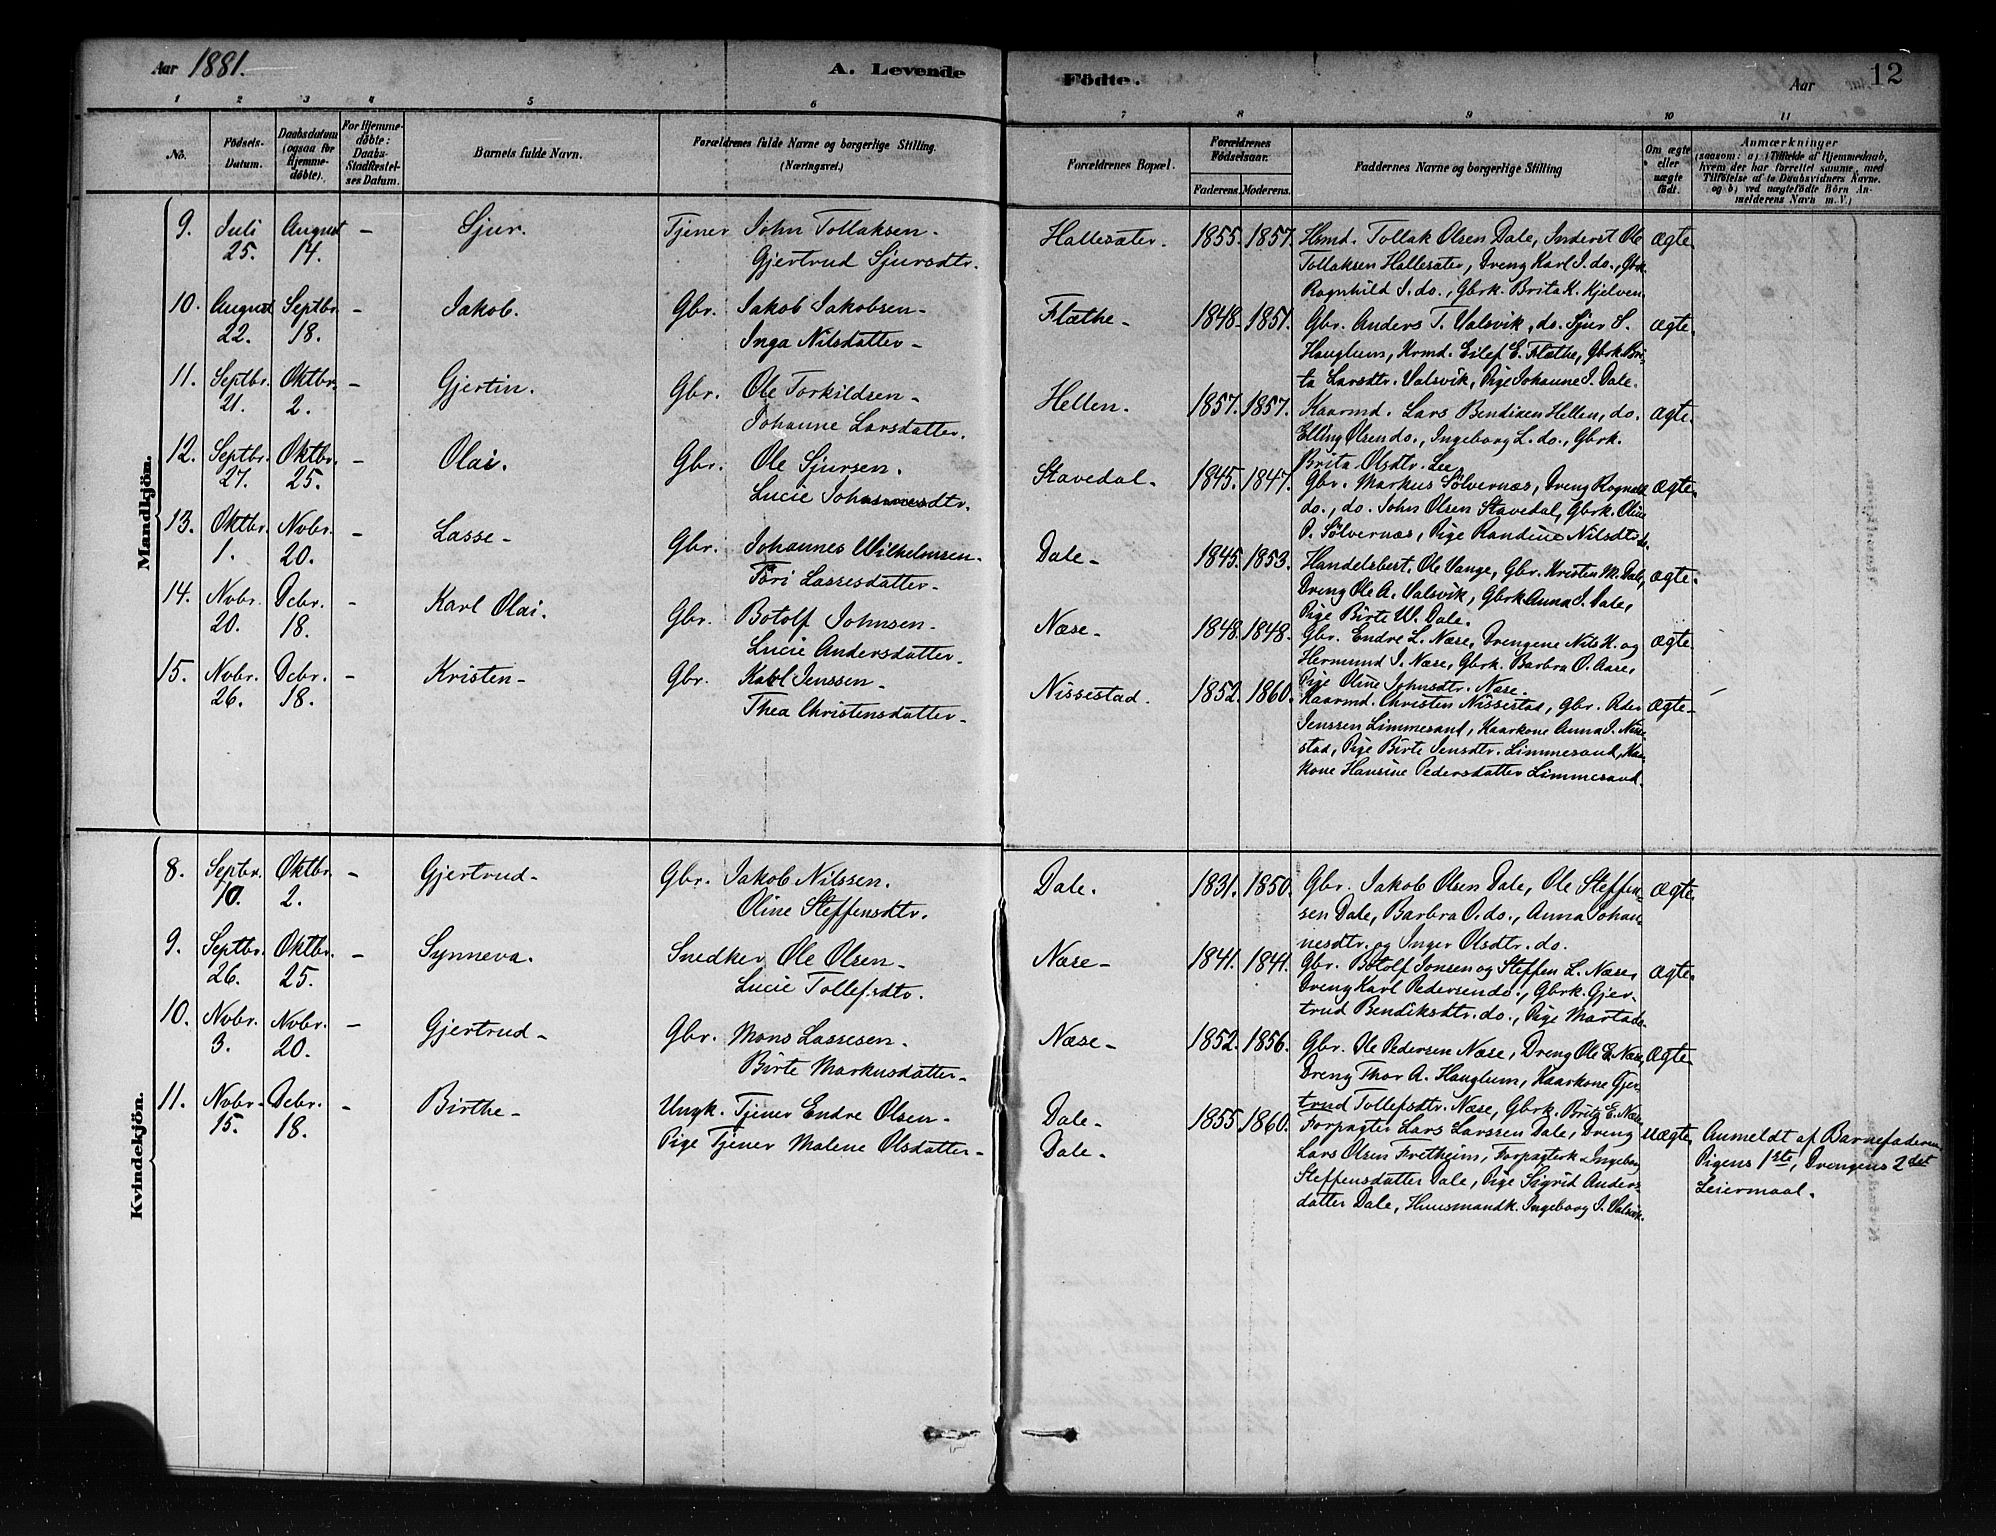 Aar 1881.
A. Levende Födte.
Aar
12
1 2 3 4 5 6 7 8 9 10 11
No.
Födsels-Datum.
Daabsdatum (ogsaa for Hjemme-döbte).
For Hjemme-döbte: Daabs-Stadfæstel-ses Datum.
Barnets fulde Navn.
Forældrenes fulde Navne og borgerlige Stilling. (Næringsvei.)
Forældrenes Bopæl.
Forældrenes Födselsaar.
Faderens. Moderens.
Faddernes Navne og borgerlige Stilling
Om ægte eller uægte födt.
Anmærkninger
(saasom: a) i Tilfælde af Hjemmedaab, hvem der har forrettet samme, med Tilföielse af to Daabsvidners Navne, og b) ved uægtefödte Börn Anmelderens Navn m. V.)
Mandkjön.
9. Juli 25. August 14. - Sjur. Tjener John Tollaksen. Gjertrud Sjursdtr. Hallesæter. 1855. 1857. Ægte.
Hsmd. Tollak Olsen Dale, Inderst Ole
Tollaksen Hallesæter, Dreng Karl J. do., Gbrk.
Ragnhild J. do., Gbrk. Brita K. Kjelven
10. August 22. Septbr. 18. - Jakob. Gbr. Jakob Jakobsen - Inga Nilsdatter - Flæthe - 1848. 1851. Ægte
Gbr. Anders T. Valsvik, do. Sjur S.
Hauglum, Krmd. Eilef E. Flæthe, Gbrk Bri-
ta Larsdtr. Valsvik, Pige Johanne J. Dale.
11. Septbr. 21. Oktbr. 2. - Gjertin. Gbr. Ole Torkildsen - Johanne Larsdatter. Hellen. 1857. 1857. Ægte.
Kaarmd. Lars Bendixen Hellen, do.
Elling Olsen do., Ingeborg L. do., Gbrk.
Brita Olsdtr. Lee
12. Septbr. 27. Oktbr. 25. - Olai. Gbr. Ole Sjursen. Lucie Johannesdtr. Stavedal. 1845. 1847. Ægte.
Gbr. Markus Sölvernæs, Dreng Rognald
do., do. John Olsen Stavedal, Gbrk. Oline
P. Sölvernæs, Pige Randine Nilsdtr
13. Oktbr. 1. Novbr. 20. - Lasse - Gbr. Johannes Wilhelmsen. Töri Lassesdatter - Dale - 1845. 1853. Ægte -
Handelsbert. Ole Vange, Gbr. Kristen M. Dale,
Dreng Ole A. Valsvik, Gbrk Anna J. Dale,
Pige Birte W. Dale.
14. Novbr. 20. Dcbr. 18. - Karl Olai. Gbr. Botolf Johnsen. Lucie Andersdatter. Næse - 1848. 1848. Ægte -
Gbr. Endre L. Næse, Drengene Nils K. og
Hermund J. Næse, Gbrk. Barbra O. Aase,
Pige Oline Johnsdtr. Næse.
15. Novbr. 26. Dcbr. 18. - Kristen - Gbr. Karl Jenssen - Thea Christensdatter - Nissestad. 1852. 1860. Ægte -
Kaarmd. Christen Nissestad, Gbr. Peder
Jenssen Limmesand, Kaarkone Anna J. Nisse-
stad, Pige Birte Jensdtr. Limmesand, Kaar-
kone Hansine Pedersdatter Limmesand.
Kvindekjön.
8. Septbr. 10. Oktbr. 2. - Gjertrud - Gbr. Jakob Nilssen. Oline Steffensdtr. Dale. 1831. 1850. Ægte.
Gbr. Jakob Olsen Dale, Ole Steffen-
sen Dale, Barbra O. do., Anna Johan-
nesdtr. og Inger Olsdtr. do.
9. Septbr. 26. Oktbr. 25. - Synneva. Snedker Ole Olsen - Lucie Tollefsdtr. Næse - 1841. 1841. Ægte -
Gbr. Botolf Jonsen og Steffen L. Næse,
Dreng Karl Pedersen do., Gbrk. Gjer-
trud Bendiksdtr. do., Pige Marta do.
10. Novbr. 3. Novbr. 20. - Gjertrud - Gbr. Mons Lassesen. Birte Markusdatter - Næse - 1852. 1856. Ægte
Gbr. Ole Pedersen Næse, Dreng Ole E. Næse,
Dreng Thor A. Hauglum, Kaarkone Gjer-
trud Tollefsdtr. Næse, Gbrk. Brita E. Næse
11. Novbr. 15. Dcbr. 18. - Birthe - Ungk. Tjener Endre Olsen - Pige Tjener Malene Olsdatter - Dale - Dale - 1855. 1860. Uægte
Forpagter Lars Larssen Dale, Dreng
Lars Olsen Fretheim, Forpagterk. Ingeborg
Steffensdatter Dale, Pige Sigrid Anders-
datter Dale, Huusmandk. Ingeborg J. Valsvik.
Anmeldt af Barnefaderen
Pigens 1ste, Drengens 2det
Leiermaal.